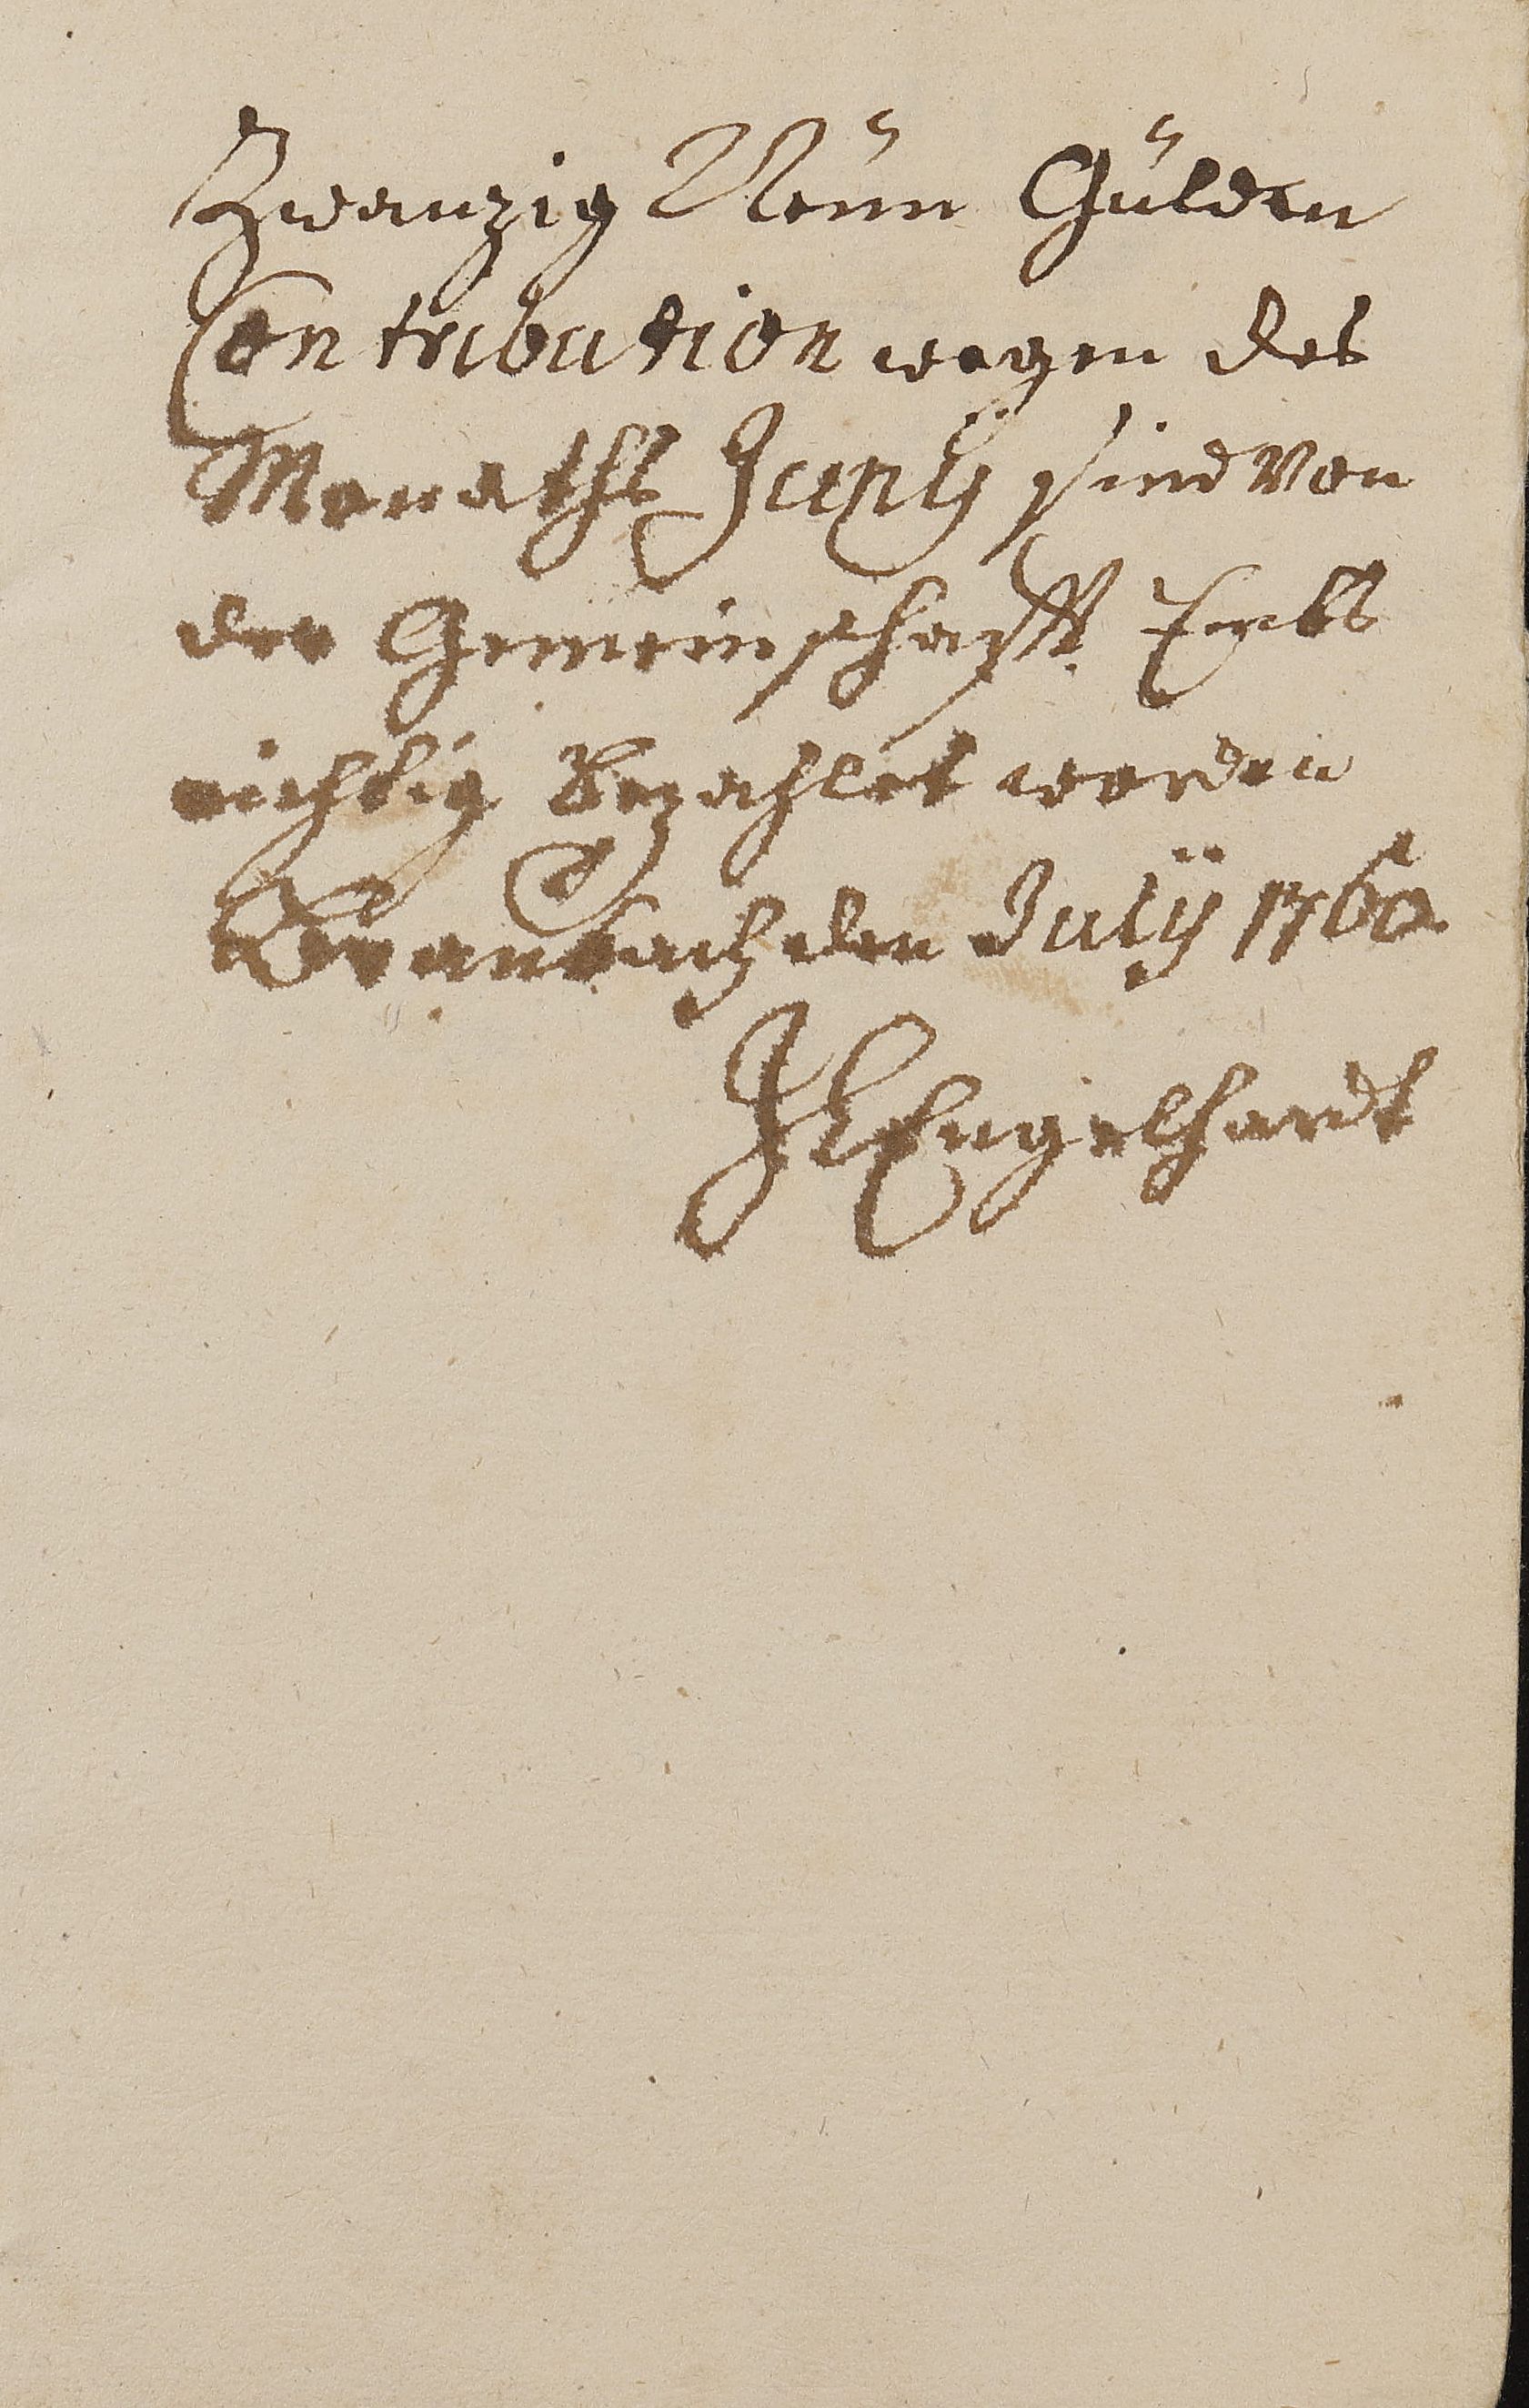 Zwanzig Neün Gülden
Contribution wegen des
Monaths Junÿ sind Von
der Gemeinschafft Embs
richtig Bezahlet worden
Braubach den Julÿ 1760
Engelhardt